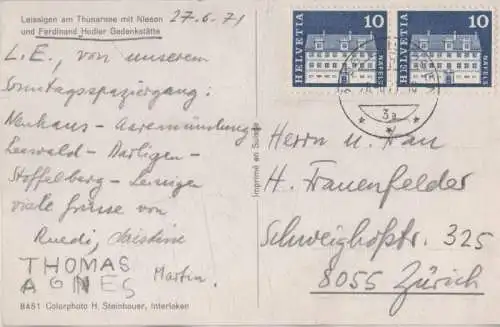 Leissigen am Thunersee mit Niesen
und Ferdinand Hodler Gedenkstätte
27.6.71
L. E., von unserem
Sonntagsspaziergang:
Neuhaus - Aaremündung
- Därligen -
Stoffelberg - Leissigen
viele Grüsse von
Ruedi, Christine
THOMAS
AGNES
Martin.
8451 Colorphoto H. Steinhauer, Interlaken
Imprimé en Suisse
HELVETIA
10
NÄFELS
HELVETIA
10
NÄFELS
3a
Herrn u. Frau
H. Frauenfelder
Schweighofstr. 325
8055 Zürich